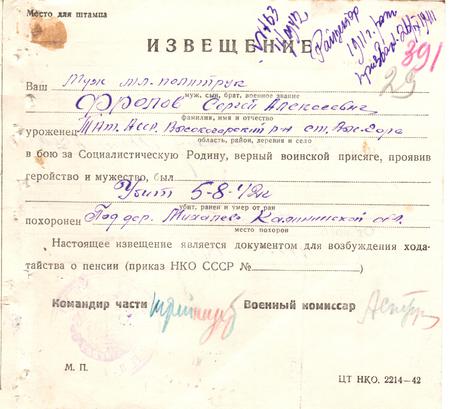 Место для штампа
ИЗВЕЩЕНИЕ
391
29
Ваш муж мл. политрук
муж, сын, брат, военное звание
Фролов Сергей Алексеевич
фамилия, имя и отчество
уроженец Тат. Асср. Высокогорский р-н ст. Выс. Гора
область, район, деревня и село
в бою за Социалистическую Родину, верный воинской присяге, проявив
геройство и мужество, был
Убит 5-8-42г
убит, ранен и умер от ран
похоронен Под дер. Михалево Калининской обл.
место похорон
Настоящее извещение является документом для возбуждения хода-
тайства о пенсии (приказ НКО СССР №
Командир части Военный комиссар
М. П.
ЦТ НКО. 2214—42